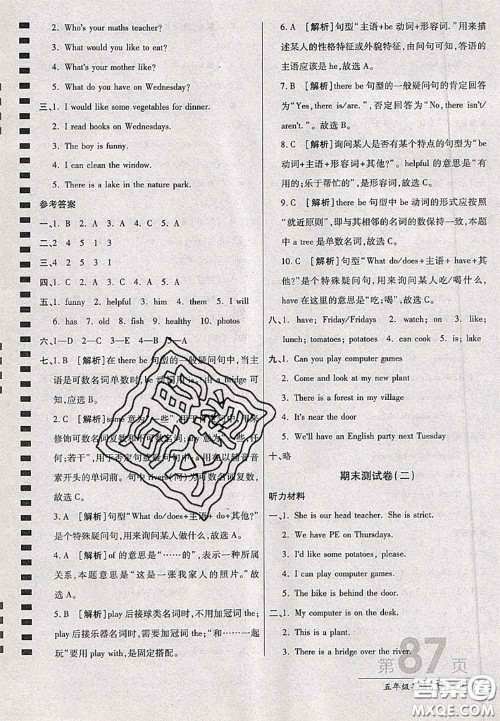 2. Who's your maths teacher?
3. What would you like to eat?
4. What's your mother like?
5. What do you have on Wednesday?
三、1. I would like some vegetables for dinner.
2. I read books on Wednesdays.
3. The boy is funny.
4. I can clean the window.
5. There is a lake in the nature park.
参考答案
一、1. B 2. A 3. A 4. B 5. B
二、2 4 5 1 3
三、2 4 5 3 1
四、1. C 2. A 3. A 4. B 5. C
五、1. funny 2. helpful 3. him 4. it 5. I will
6. has 7. old 8. fish 9. healthy 10. photos
六、1—D 2—C 3—B 4—E 5—A
七、1. B [解析]在 there be 句型的一般疑问句中,当主
语是可数名词单数时,be 动词用 is,由 a bridge 可
知,故选 B。
2. C [解析]some 意为"一些",用于肯定句中,用来
修饰可数名词复数和不可数名词;any 意为"任何;
若干",用于否定句或疑问句中;a 用来修饰以辅音音
素开头的单词前。句中 rivers(河)为可数名词复
数,故选 C。
3. A [解析]句型"What do/does+主语+do+其他?"
是特殊疑问句,当问某人做某事,故选 A。
4. A [解析]of 的意思是"……的",表示一种所属
关系,本题意思是"这是一张我家人的照片。"故
选 A。
5. B [解析]play 后接球类名词时,不用加冠词 the;
play 后接乐器名词时,要加冠词 the;和……一起
玩"要用 play with,是固定搭配。
6. A [解析]句型"主语+be 动词+形容词。"用来描
述某人的性格特征或外貌特征,由问句可知,答语的
主语应该是 he,故选 A。
7. B [解析]there be 句型的一般疑问句的肯定回答
为"Yes, there is/are.",否定回答为"No, there isn't/
aren't."。故选 B。
8. C [解析]询问某人是否有某个特点的句型为"be
动词+主语+形容词+其他?"。helpful 的意思是"有
用的;乐于帮忙的",是形容词,故选 C。
9. C [解析]there be 句型中 be 动词的形式应符合
"就近原则",即与其相邻的名词的数保持一致,本题
中 a tree 是单数名词,故选 C。
10. C [解析]句型"What do/does+主语+have+其
他?"是个特殊疑问句,用来询问某人吃/喝什么,
have 在这里的意思是"吃;喝",故选 C。
八、1. have; Friday/Fridays 2. do; have 3. like;
lunch; tomatoes; potatoes 4. can; cook 5. is; look
九、1. Can you play computer games
2. Come and look at my new plant
3. There is a forest in my village
4. It's near the door
5. We'll have an English party next Tuesday
十、略
期末测试卷(二)
听力材料
一、1. She is our head teacher. She is strict.
2. We have PE on Thursdays.
3. I'd like some potatoes, please.
4. I can play computer games.
5. The bike is behind the door.
二、1. My computer is on the desk.
2. This is a plant.
3. There is a bridge over the river.
第87页
五年级
答案圈
MXQE.COM